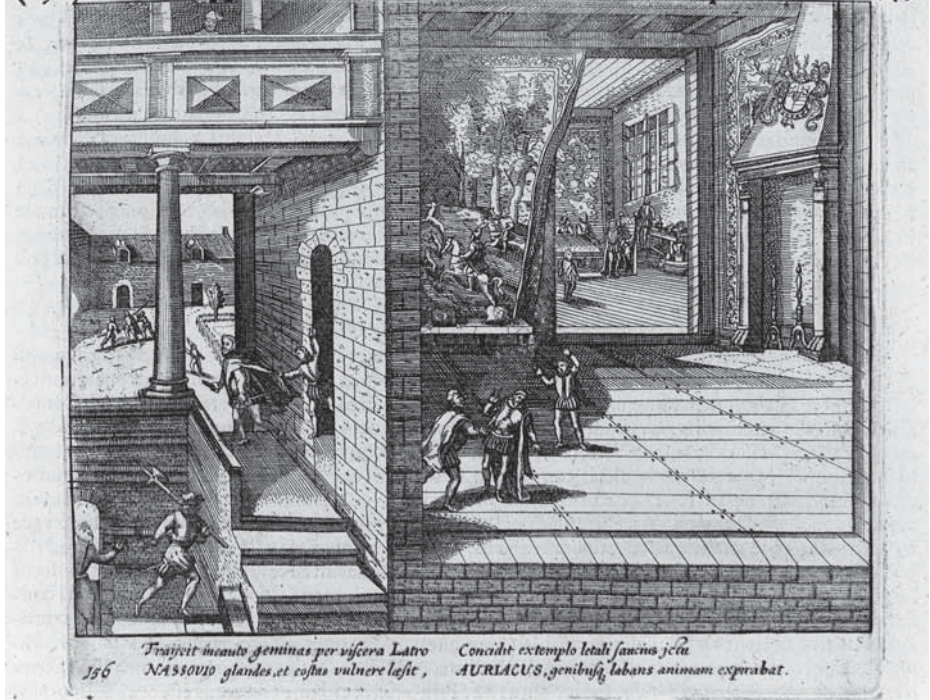 Traijcit incauto geminas per viscera Latro
NASSOVIO glandes, et costas vulnere læsit,
Concidit extemplo letali saucius jctu
AURIACUS, genibusq; labans animam expirabat.
156